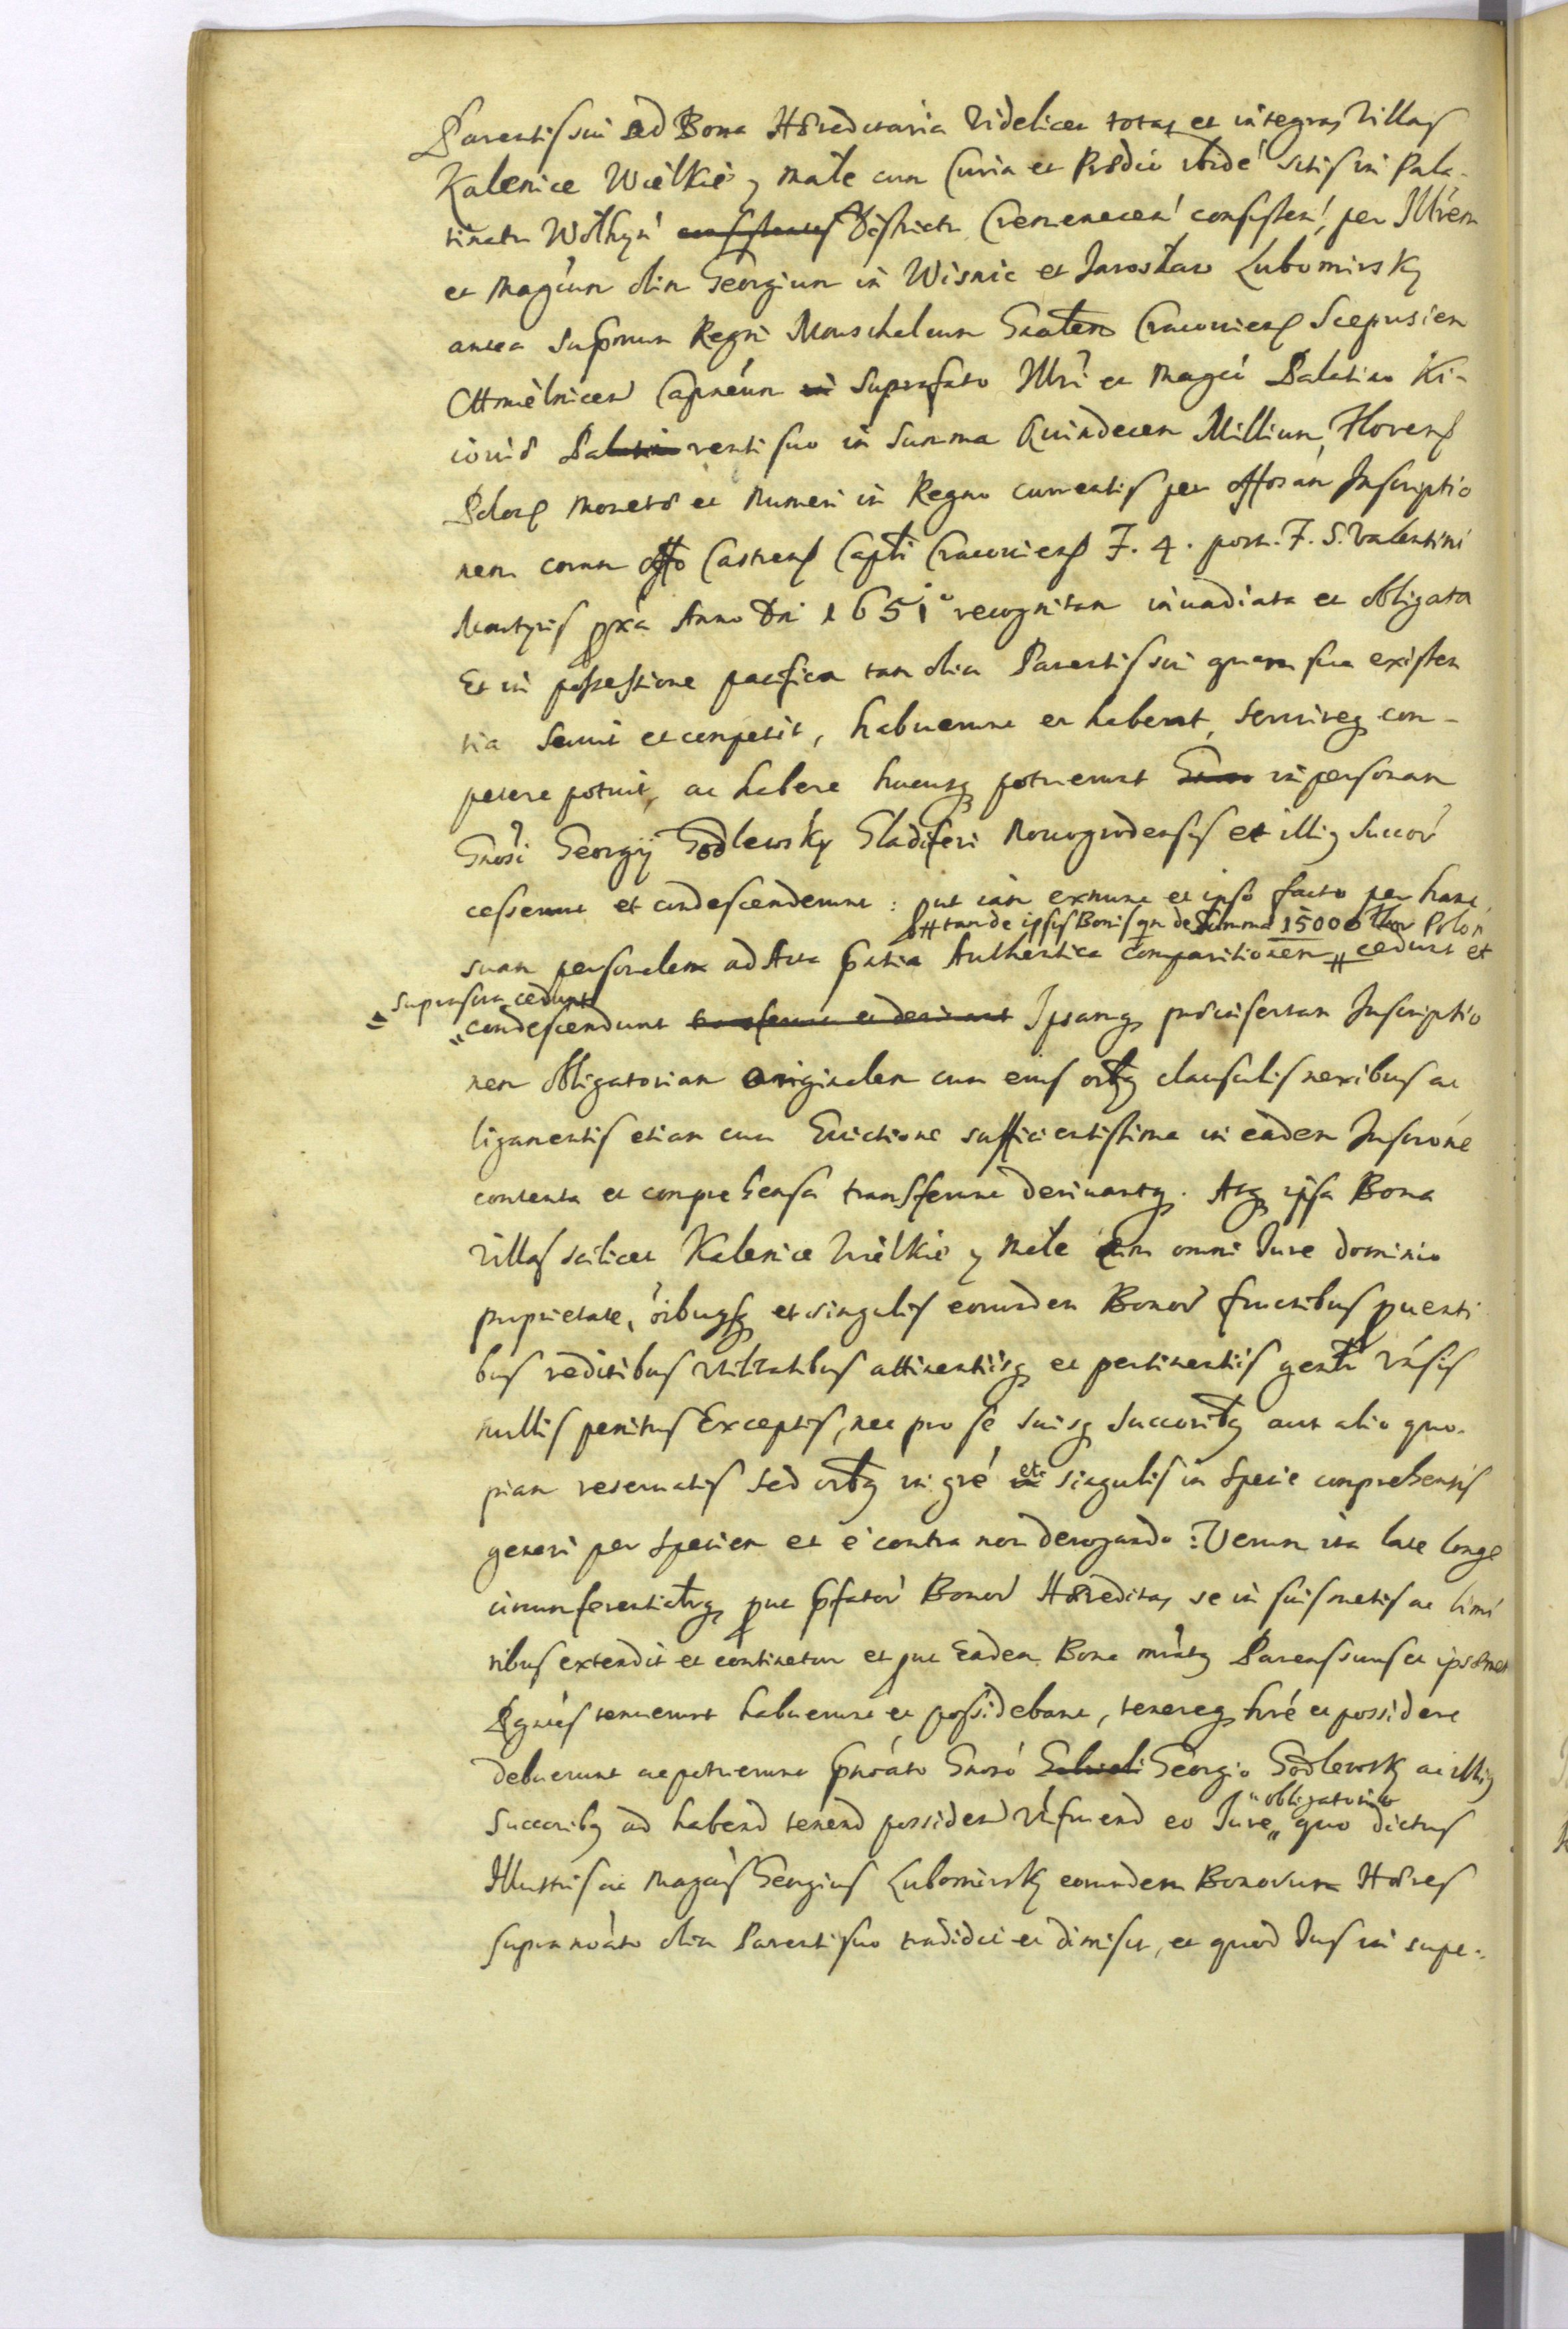 Parentis sui ad Bona Hæreditaria videlicet totas et integras Villas
Kalenice Wielkie y małe cum Curia et Prædio ibidé sitis in Pala-
tinatu Wołhyń consistentes districtu Cremenecen consisten, per Illrem
et Magcum olim Georgium in Wisnic et Jarosław Lubomirsky
antea Supremum Regni Mareschalcum Gńalem Cracoviens Scepusien
Chmielnicen Capneum in Suprafato Illri et Magco Palatino Ki-
ioviæ Palati renti suo in Summa Quindecem Millium Florens
Polors monetæ et numeri in Regno currentis per offosam Inscriptio
nem coram offo Castrens Capti Cracoviens F. 4. post. F. S. Valentini
Martyris pxa Anno Dni 1651° recognitam invadiata et obligata
Et in possessione pacifica tam olim Parentis sui quam sua existen
tia servit et competit, habuerunt et habent, servireq con-
petere potuit, ac habere hucusq potuerunt in personam
Gnosi Georgij Godlewsky Gladiferi Novogrodensis et illiq Succor
cesserunt et condescenderunt: put iam exnunc et ipso facto per hanc
tam de ipsis Bonis qm de Summa 15000 Flor Polon
suam personalem ad Acta pntia Authentica comparitionem cedunt et
suprascta cedunt
condescendunt transferunt et derivant Ipsamq præinsertam Inscriptio
nem obligatoriam originalem cum eius oibq clausulis nexibus ac
ligamentis etiam cum Evictione sufficientissima in eadem Inscrone
contenta et comprehensa transferunt derivantq. Atq ipsa Bona
Villas scilicet Kalenice Wielkie y Małe cum omni Jure dominio
proprietate, oibusq et singulis eorundem Bonor fructibus puenti
bus reditibus utiltatibus attinentiisq et pertinentiis genlr Vnsis
nullis penitus Exceptis, nec pro se suisq Succoribq aut alio quo-
piam reservatis sed oibq in gre et singulis in specie comprehensis
generi per speciem et e contra non derogando: Verum ita late longe
circumferentialrq put pfator Bonor Hæreditas se in suis metis ac limi
nibus extendit et continetur et put Eadem Bona Parens suus et ipsemet
tenuerunt habuerunt et possidebant, tenereq hre et possidere
debuerunt ac potuerunt pnoato Gnoso Georgio Godlewsky ac illiq
Succoribq ad habend tenend possidend utifruend eo Jure obligatorio quo dictus
Illustris ac Magcus Georgius Lubomirsky eorundem Bonorum Hæres
supra noato olim Parenti suo tradidit et dimisit, et quod Jus in supe-